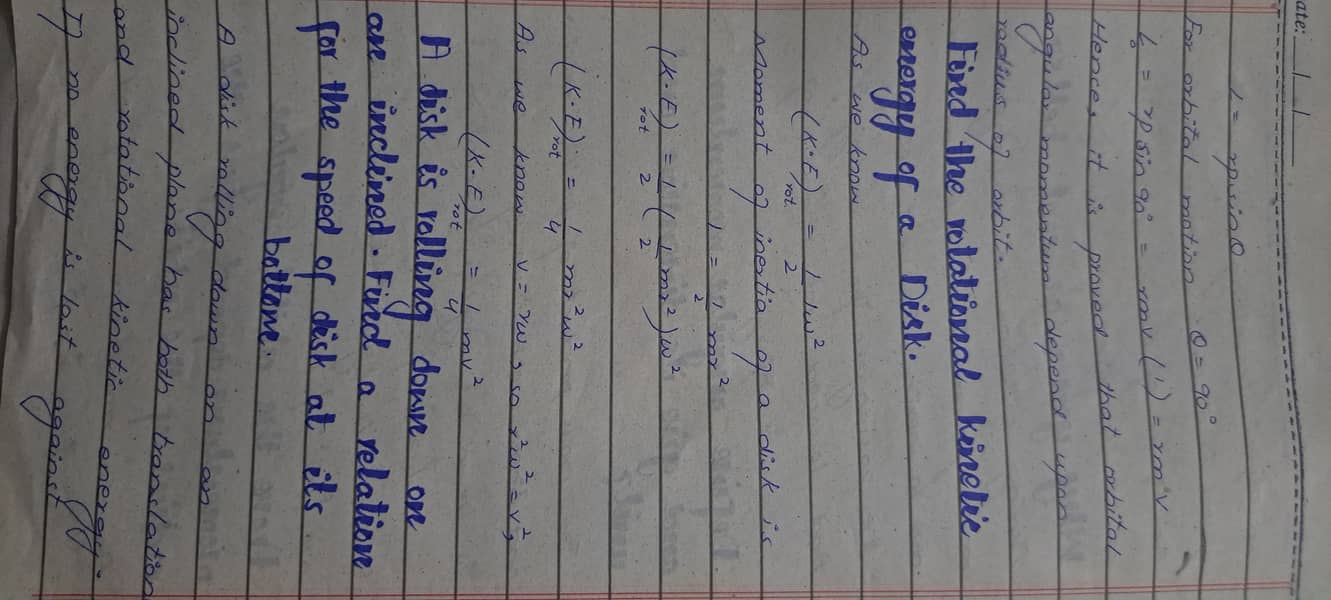 ate: __/__/__
L = rpsinθ
For orbital motion θ = 90°
L₀ = rpsin90° = rmv (1) = rmv
Hence, it is proved that orbital
angular momentum depend upon
radius of orbit.
Find the rotational kinetic
energy of a Disk.
As we know
(K.E)rot. = 1/2 Iω²
Moment of inertia of a disk is
I = 1/2 mr²
(K.E)rot = 1/2 (1/2 mr²)ω²
(K.E)rot = 1/4 mr²ω²
As we know v = rω, so r²ω² = v²,
(K.E)rot = 1/4 mv²
A disk is rolling down on
an inclined. Find a relation
for the speed of disk at its
bottom.
A disk rolling down on an
inclined plane has both translation
and rotational kinetic energy.
If no energy is lost against